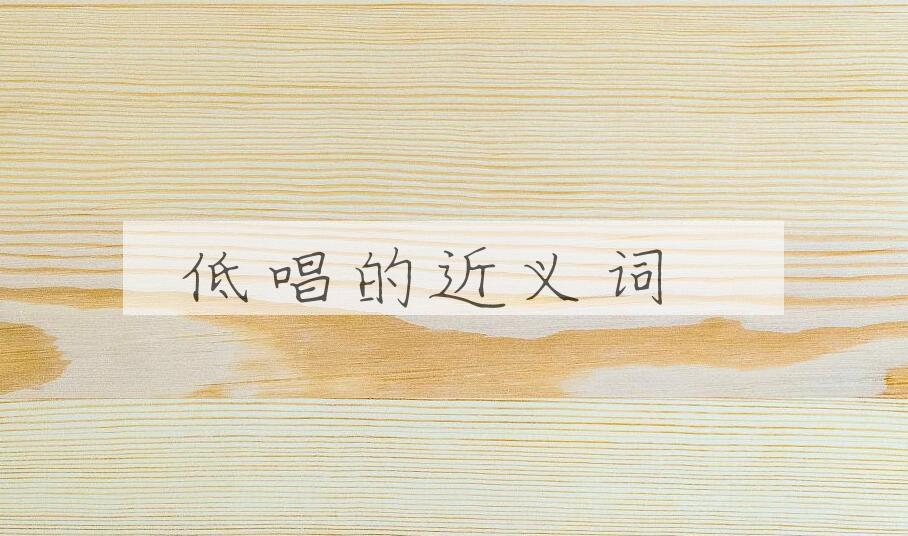 低唱的近义词